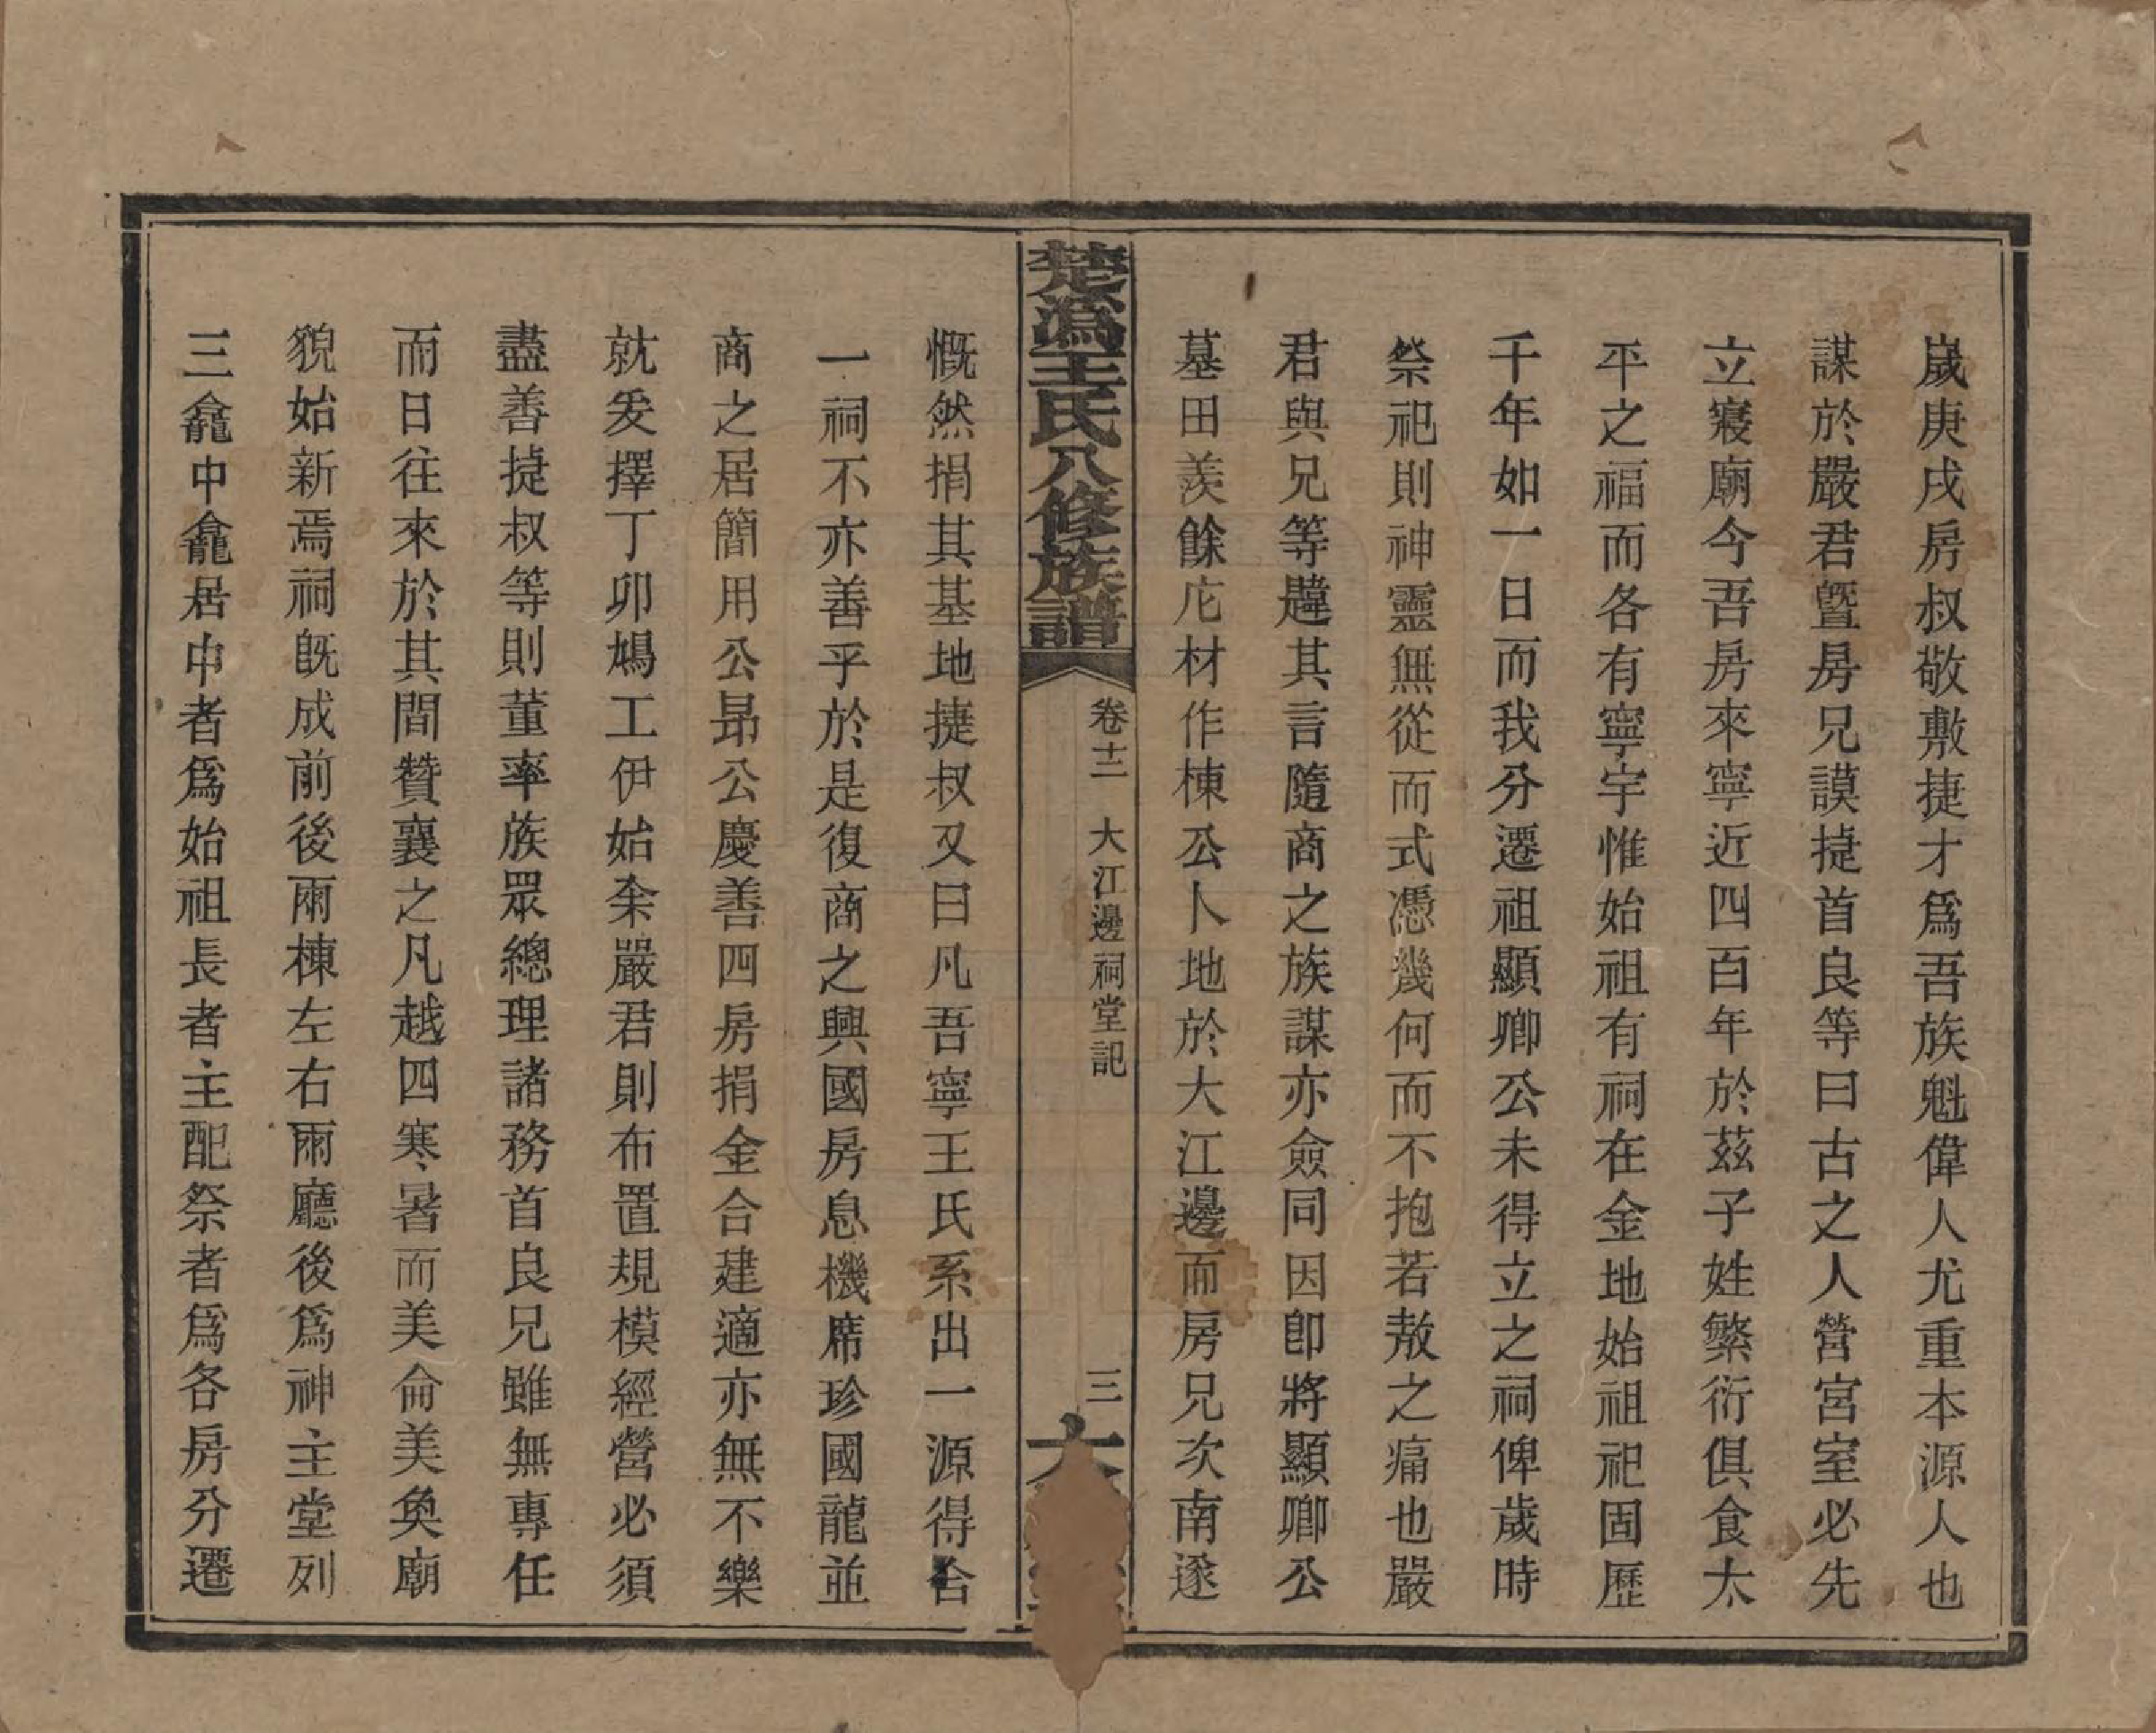 歲庚戌房叔敬敷捷才爲吾族魁偉人尤重本源人也
謀於嚴君曁房兄謨㨗首良等曰古之人營宮室必先
立寢廟今吾房來寧近四百年於茲子姓繁衍俱食太
平之福而各有寧宇惟始祖有祠在金地始祖祀固歷
千年如一日而我分遷祖顯卿公未得立之祠俾歲時
祭祀則神靈無從而式憑幾何而不抱若敖之痛也嚴
君與兄等韙其言隨商之族謀亦僉同因卽將顯卿公
墓田羨餘庀材作棟公卜地於大江邊而房兄次南遂
楚溈王氏八修族譜
卷十二　大江邊祠堂記
三
慨然捐其基地捷叔又曰凡吾寧王氏系出一源得合
一祠不亦善乎於是復商之興國房息機席珍國龍並
商之居簡用公昻公慶善四房捐金合建適亦無不樂
就爰擇丁卯鳩工伊始余嚴君則布置規模經營必須
盡善㨗叔等則董率族眾總理諸務首良兄雖無專任
而日往來於其間贊襄之凡越四寒暑而美侖美奐廟
貌始新焉祠旣成前後兩棟左右兩廳後爲神主堂列
三龕中龕居中者爲始祖長者主配祭者爲各房分遷